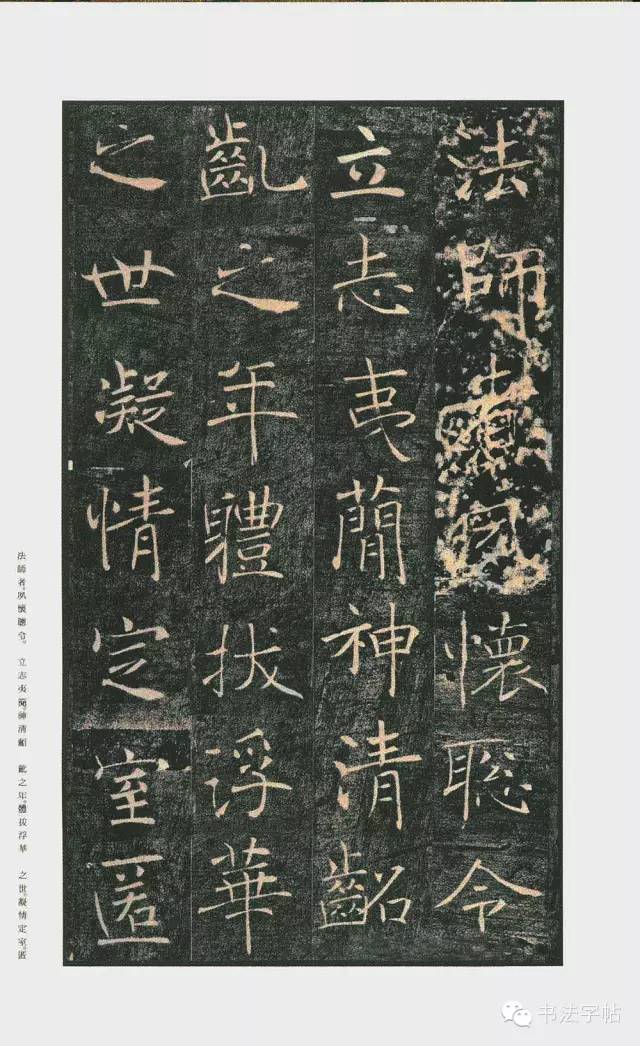 法師者夙懷聰令
立志夷簡神清齠
齔之年體拔浮華
之世凝情定室匿
法師者。夙懷聰令。 立志夷簡。神清齠 齔之年。體拔浮華 之世。凝情定室。匿
书法字帖